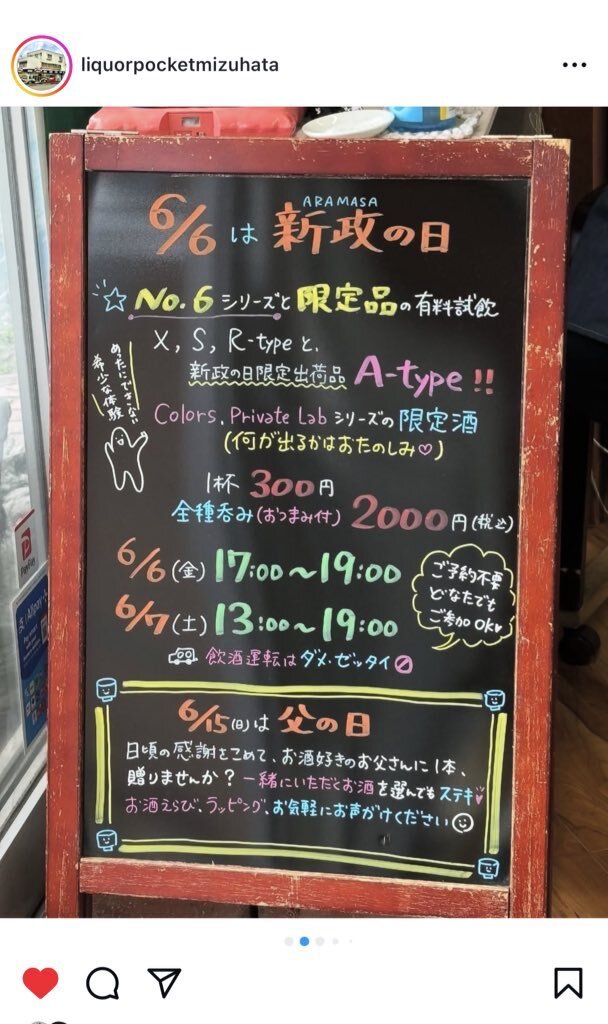 liquorpocketmizuhata
ARAMASA
6/6 は 新政の日
☆ No.6 シリーズと 限定品の有料試飲
X, S, R-type と、
新政の日限定出荷品 A-type !!
めったにできない
希少な体験
Colors、Private Lab シリーズの限定酒
(何が出るかはおたのしみ♡)
1杯 300円
全種呑み(おつまみ付) 2000円(税込)
6/6(金) 17:00〜19:00
6/7(土) 13:00〜19:00
ご予約不要
どなたでも
ご参加OK♥
飲酒運転はダメ・ゼッタイ
6/15(日)は 父の日
日頃の感謝をこめて、お酒好きのお父さんに1本、
贈りませんか？一緒にいただくお酒を選んでもステキ♥
お酒えらび、ラッピング、お気軽にお声がけください☺
PayPay
Alipay